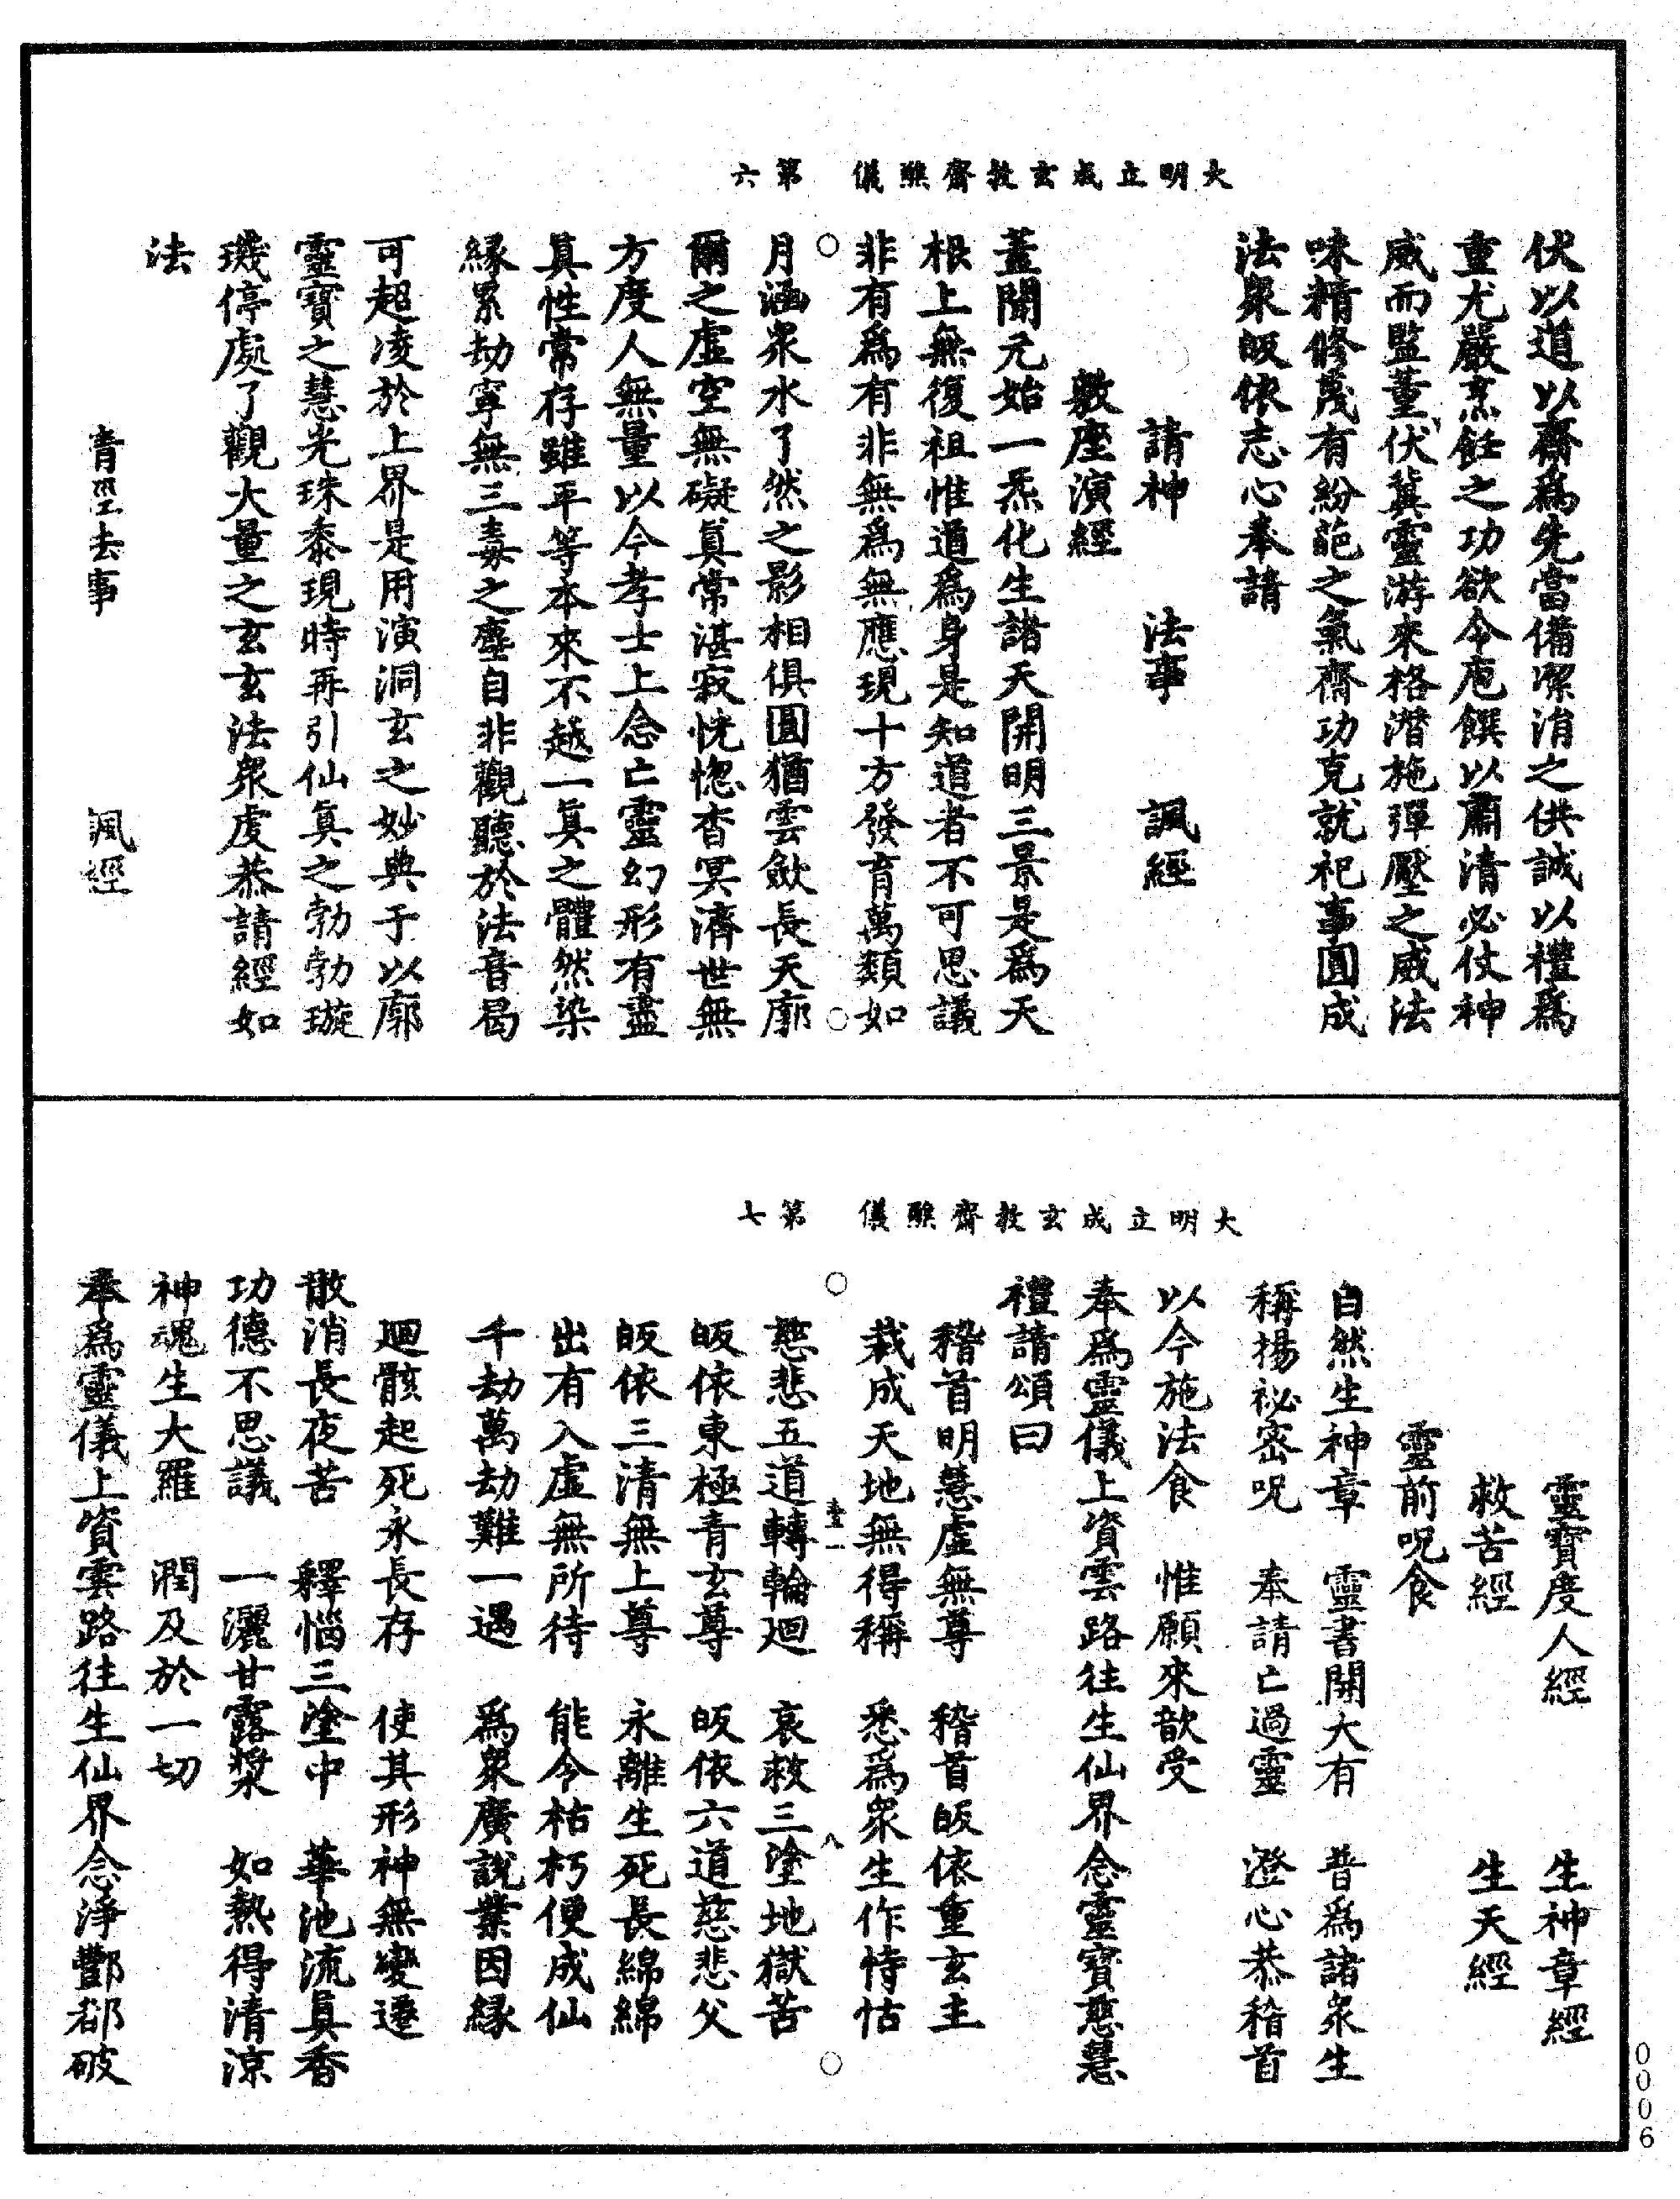 大明立成玄教齋醮儀　第六
伏以道以齋爲先當備潔淯之供誠以禮爲
重尤嚴烹飪之功欲令庖饌以肅清必仗神
威而監董伏冀靈游來格潛施彈壓之威法
味精修蔑有紛葩之氣齋功克就祀事圓成
法衆皈依志心奉請
請神　法事　諷經
敷座演經
蓋聞元始一炁化生諸天開明三景是爲天
根上無復祖惟道爲身是知道者不可思議
非有爲有非無爲無應現十方發育萬類如
月涵衆水了然之影相俱圓猶雲歛長天廓
爾之虛空無礙眞常湛寂恍惚杳冥濟世無
方度人無量以今孝士上念亡靈幻形有盡
真性常存雖平等本來不越一眞之體然染
緣累劫寧無三毒之塵自非觀聽於法音曷
可超凌於上界是用演洞玄之妙典于以廓
靈寶之慧光珠黍現時再引仙眞之勃勃璇
璣停處了觀大量之玄玄法衆虔恭請經如
法
請經法事　諷經
大明立成玄教齋醮儀　第七
靈寶度人經　生神章經
救苦經　生天經
靈前呪食
自然生神章　靈書開大有　普爲諸衆生
稱揚祕密呪　奉請亡過靈　澄心恭稽首
以今施法食　惟願來歆受
奉爲靈儀上資雲路往生仙界念靈寶慈慧
禮請頌曰
稽首明慧虛無尊　稽首皈依重玄主
栽成天地無得稱　悉爲衆生作恃怙
慈悲五道轉輪廻　哀救三塗地獄苦
皈依東極青玄尊　皈依六道慈悲父
皈依三清無上尊　永離生死長綿綿
出有入虛無所待　能令枯朽便成仙
千劫萬劫難一遇　爲衆廣說業因緣
廻骸起死永長存　使其形神無變遷
散消長夜苦　釋惱三塗中　華池流眞香
功德不思議　一灑甘露漿　如熱得清涼
神魂生大羅　潤及於一切
奉爲靈儀上資雲路往生仙界念淨酆都破
八
0006